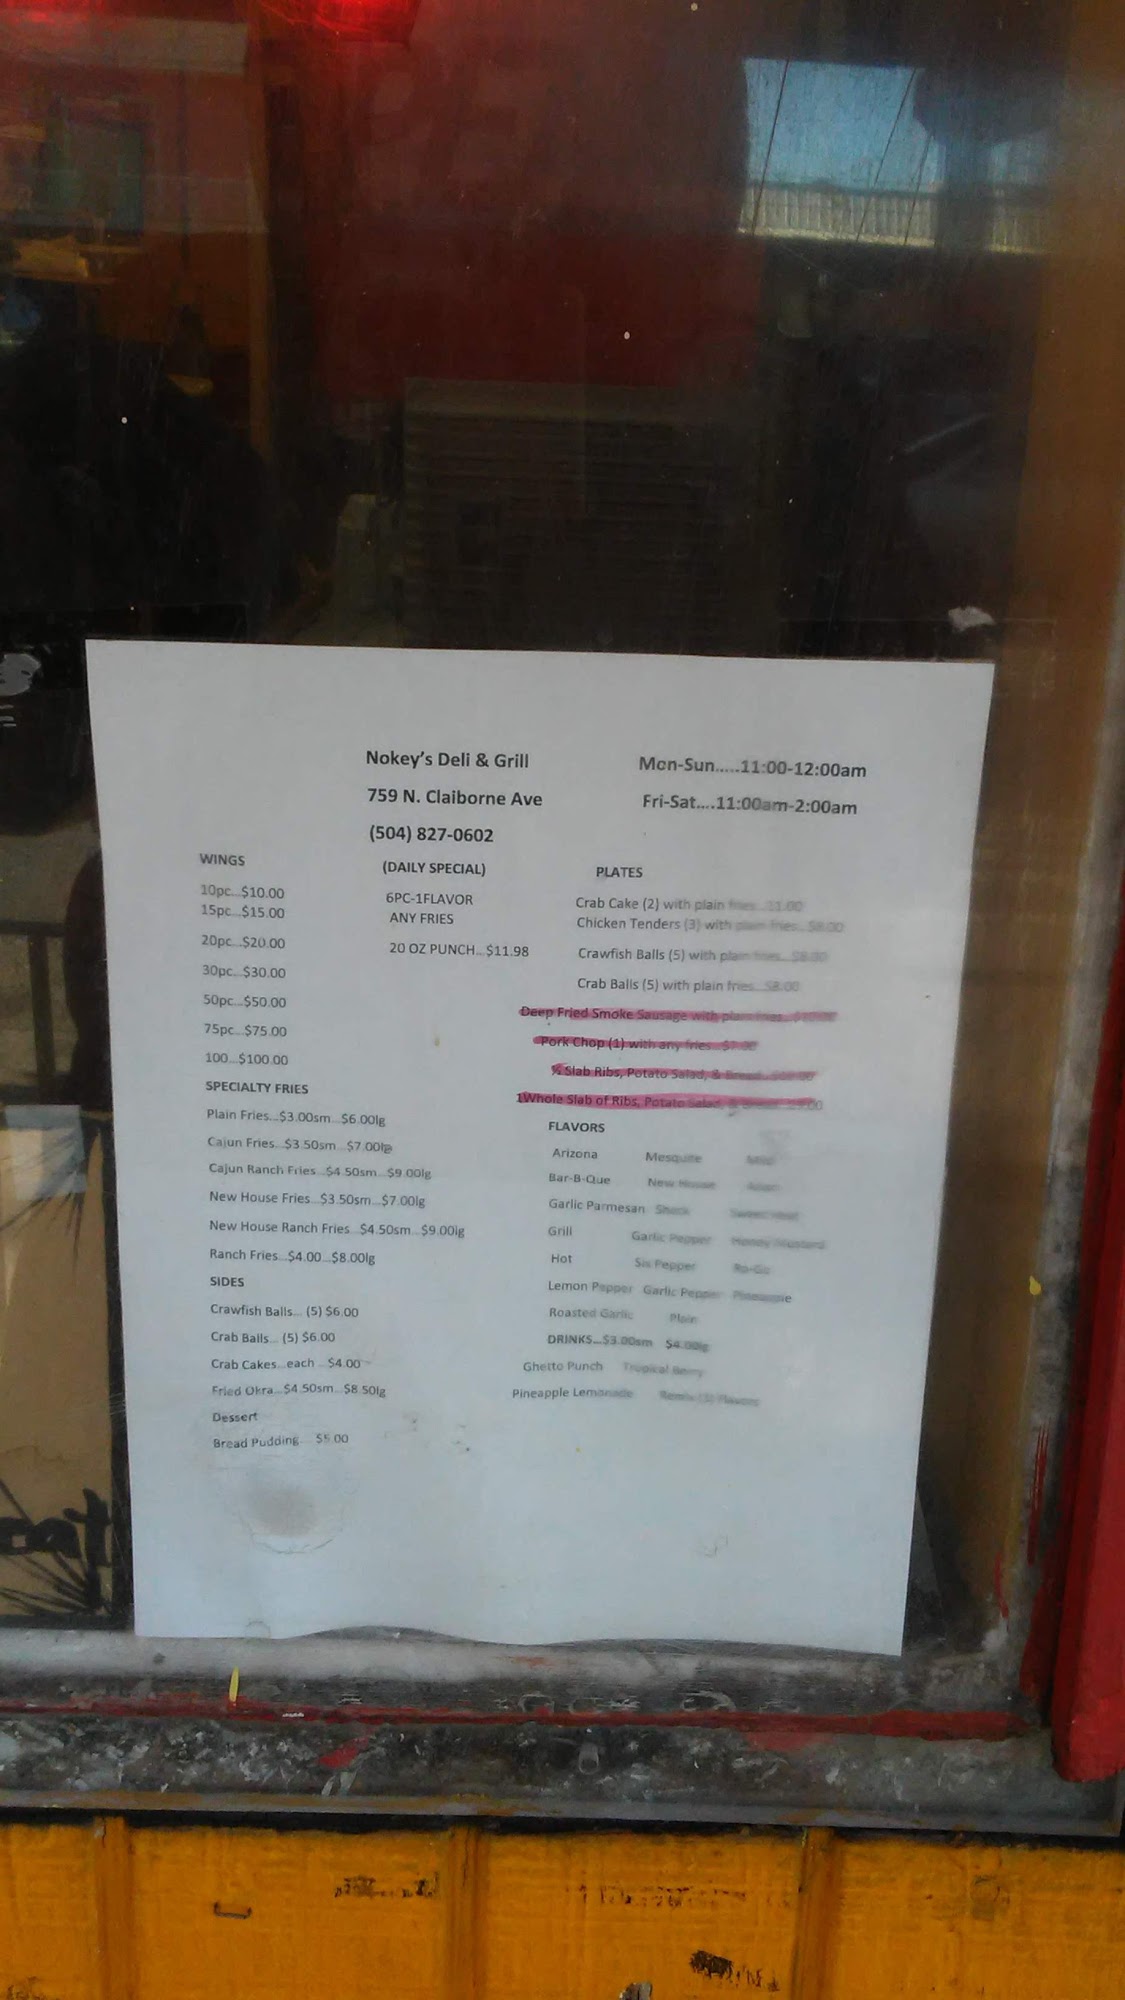 Nokey's Deli & Grill
759 N. Claiborne Ave
(504) 827-0602
Mon-Sun.....11:00-12:00am
Fri-Sat....11:00am-2:00am
WINGS
10pc...$10.00
15pc...$15.00
20pc...$20.00
30pc...$30.00
50pc...$50.00
75pc...$75.00
100...$100.00
SPECIALTY FRIES
Plain Fries...$3.00sm...$6.00lg
Cajun Fries...$3.50sm...$7.00lg
Cajun Ranch Fries...$4.50sm...$9.00lg
New House Fries...$3.50sm...$7.00lg
New House Ranch Fries...$4.50sm...$9.00lg
Ranch Fries...$4.00...$8.00lg
SIDES
Crawfish Balls... (5) $6.00
Crab Balls... (5) $6.00
Crab Cakes...each...$4.00
Fried Okra...$4.50sm...$8.50lg
Dessert
Bread Pudding... $5.00
(DAILY SPECIAL)
6PC-1FLAVOR
ANY FRIES
20 OZ PUNCH...$11.98
PLATES
Crab Cake (2) with plain fries...11.00
Chicken Tenders (3) with plain fries...$8.00
Crawfish Balls (5) with plain fries...$8.00
Crab Balls (5) with plain fries...$8.00
Deep Fried Smoke Sausage with plain fries
Pork Chop (1) with any fries...$7.00
½ Slab Ribs, Potato Salad, & Bread
1Whole Slab of Ribs, Potato Salad, & Bread
FLAVORS
Arizona Mesquite Mild
Bar-B-Que New House
Garlic Parmesan Shack Sweet Heat
Grill Garlic Pepper Honey Mustard
Hot Sis Pepper Ro-Go
Lemon Pepper Garlic Pepper Pineapple
Roasted Garlic Plain
DRINKS...$3.00sm $4.00lg
Ghetto Punch Tropical Berry
Pineapple Lemonade Remix (3) Flavors